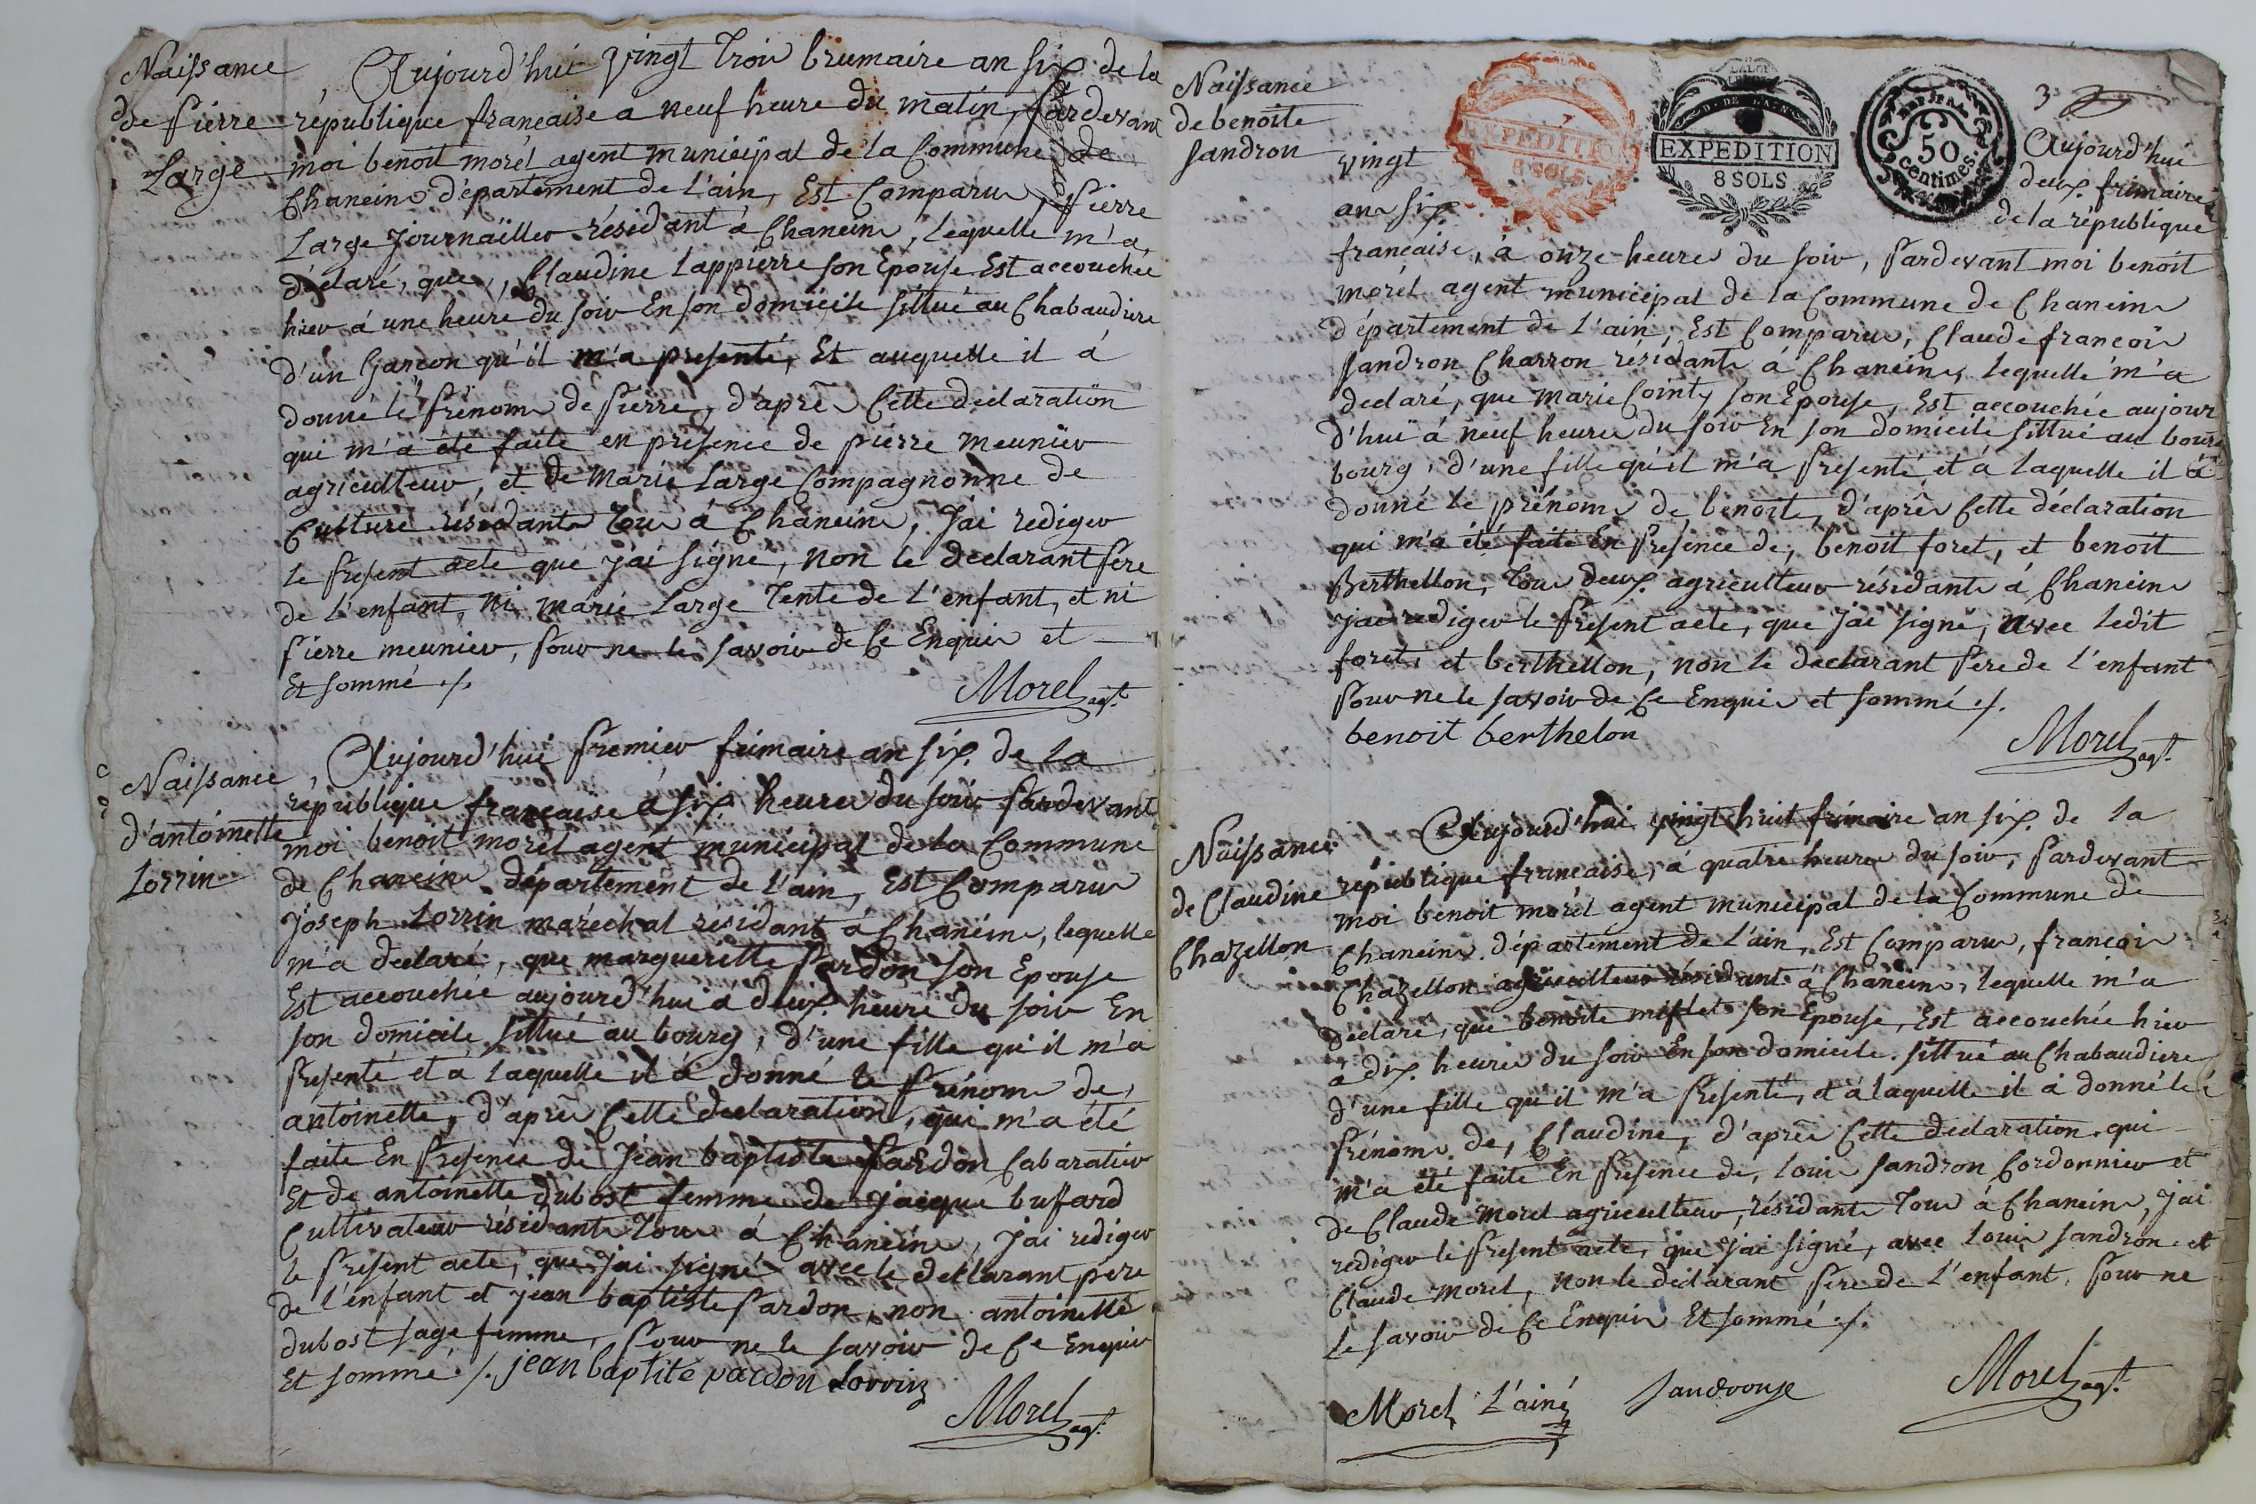 Naissance
de Pierre
Large
Aujourd'hui vingt trois brumaire an six de la
république francaise a neuf heure du matin, pardevant
moi benoit morel agent municipal de la Commune de
Chaneins département de l'ain, Est Comparu, Pierre
Large Journaillier résidant á Chaneins, lequelle m'a
déclaré, que, Claudine Lappierre son Epouse Est accouchée
hier á une heure du soir En son domicile sittué au Chabaudiere
d'un Garcon qu'il m'a presenté, Et auquelle il á
donné le Prénom de Pierre, d'après Cette declaration
qui m'a été faite en presence de pierre meunier
agriculteur, et de Marie Large Compagnonne de
Culture résidants tous á Chaneins, J'ai rediger
le Present acte que j'ai signé, non le declarant Pere
de l'enfant, ni marie Large Tente de l'enfant, et ni
Pierre meunier, Pour ne le savoir de Ce Enquis et
Et sommé ./.
Morel agt.
Naissance
d'antoinette
Lorrin
Aujourd'hui Premier frimaire an six de la
république française á six heures du soir Pardevant
moi benoit morel agent municipal de la Commune
de Chaneins département de l'ain, Est Comparu
Joseph Lorrin maréchal résidant á Chaneins, lequelle
m'a declaré, que margueritte Pardon son Epouse
Est accouchée aujourd'hui á deux heure du soir En
son domicile sittué au bourg, d'une fille qu'il m'a
Presenté et á laquelle il á donné le Prénom de,
antoinette, d'après Cette declaration, qui m'a été
faite En Presence de Jean baptiste Pardon Cabaratier
Et de antoinette dubost femme de jacque bufard
Cultivateur résidants tous á Chaneins, j'ai rediger
le Present acte, que j'ai signé avec le declarant père
de l'enfant et jean baptiste Pardon, non antoinette
dubost sage femme, Pour ne le savoir de Ce Enquis
Et sommé ./. jean baptite pardon Lorrin
Morel agt.
Naissance
de benoite
Sandron
EXPEDITION
8 SOLS
D. DE L'AIN
EXPEDITION
8 SOLS
REP. FRA.
50
Centimes.
3
Aujourd'hui
vingt deux frimaire
an six de la republique
francaise, á onze heures du soir, Pardevant moi benoit
morel agent municipal de la Commune de Chaneins
département de l'ain, Est Comparu, Claude francois
Sandron Charron résidants á Chaneins, lequelle m'a
declaré, que marie Cointy son Epouse, Est accouchée aujour
d'hui á neuf heures du soir En son domicile sittué au bourg
bourg, d'une fille qu'il m'a Presenté et á laquelle il á
donné le prénom de benoite, d'après Cette déclaration
qui m'a été faite En Presence de, benoit foret, et benoit
Berthellon, Tous deux agriculteur résidants á Chaneins
j'ai rediger le Present acte, que J'ai signé, avec ledit
foret, et berthellon, non le declarant Pere de l'enfant
Pour ne le savoir de Ce Enquis et sommé ./.
benoit berthelon
Morel agt.
Naissance
de Claudine
Chazellon
Aujourd'hui vingt huit frimaire an six de la
république francaise, á quatre heures du soir, Pardevant
moi benoit morel agent municipal de la Commune de
Chaneins département de l'ain, Est Comparu, francois
Chazellon agriculteur résidants á Chaneins, lequelle m'a
declaré, que benoite son Epouse, Est accouchée hier
á dix heures du soir En son domicile sittué au Chabaudiere
d'une fille qu'il m'a Presenté, et á laquelle il á donné le
Prénom de, Claudine, d'après Cette declaration, qui
m'a été faite En Presence de, Louis Sandron Cordonnier et
de Claude Morel agriculteur, résidants Tous á Chaneins, j'ai
rediger le Present acte, que j'ai signé, avec Louis Sandron et
Claude Morel, non le declarant Pere de l'enfant, Pour ne
le savoir de Ce Enquis Et sommé ./.
Morel L'ainé
Morel agt.